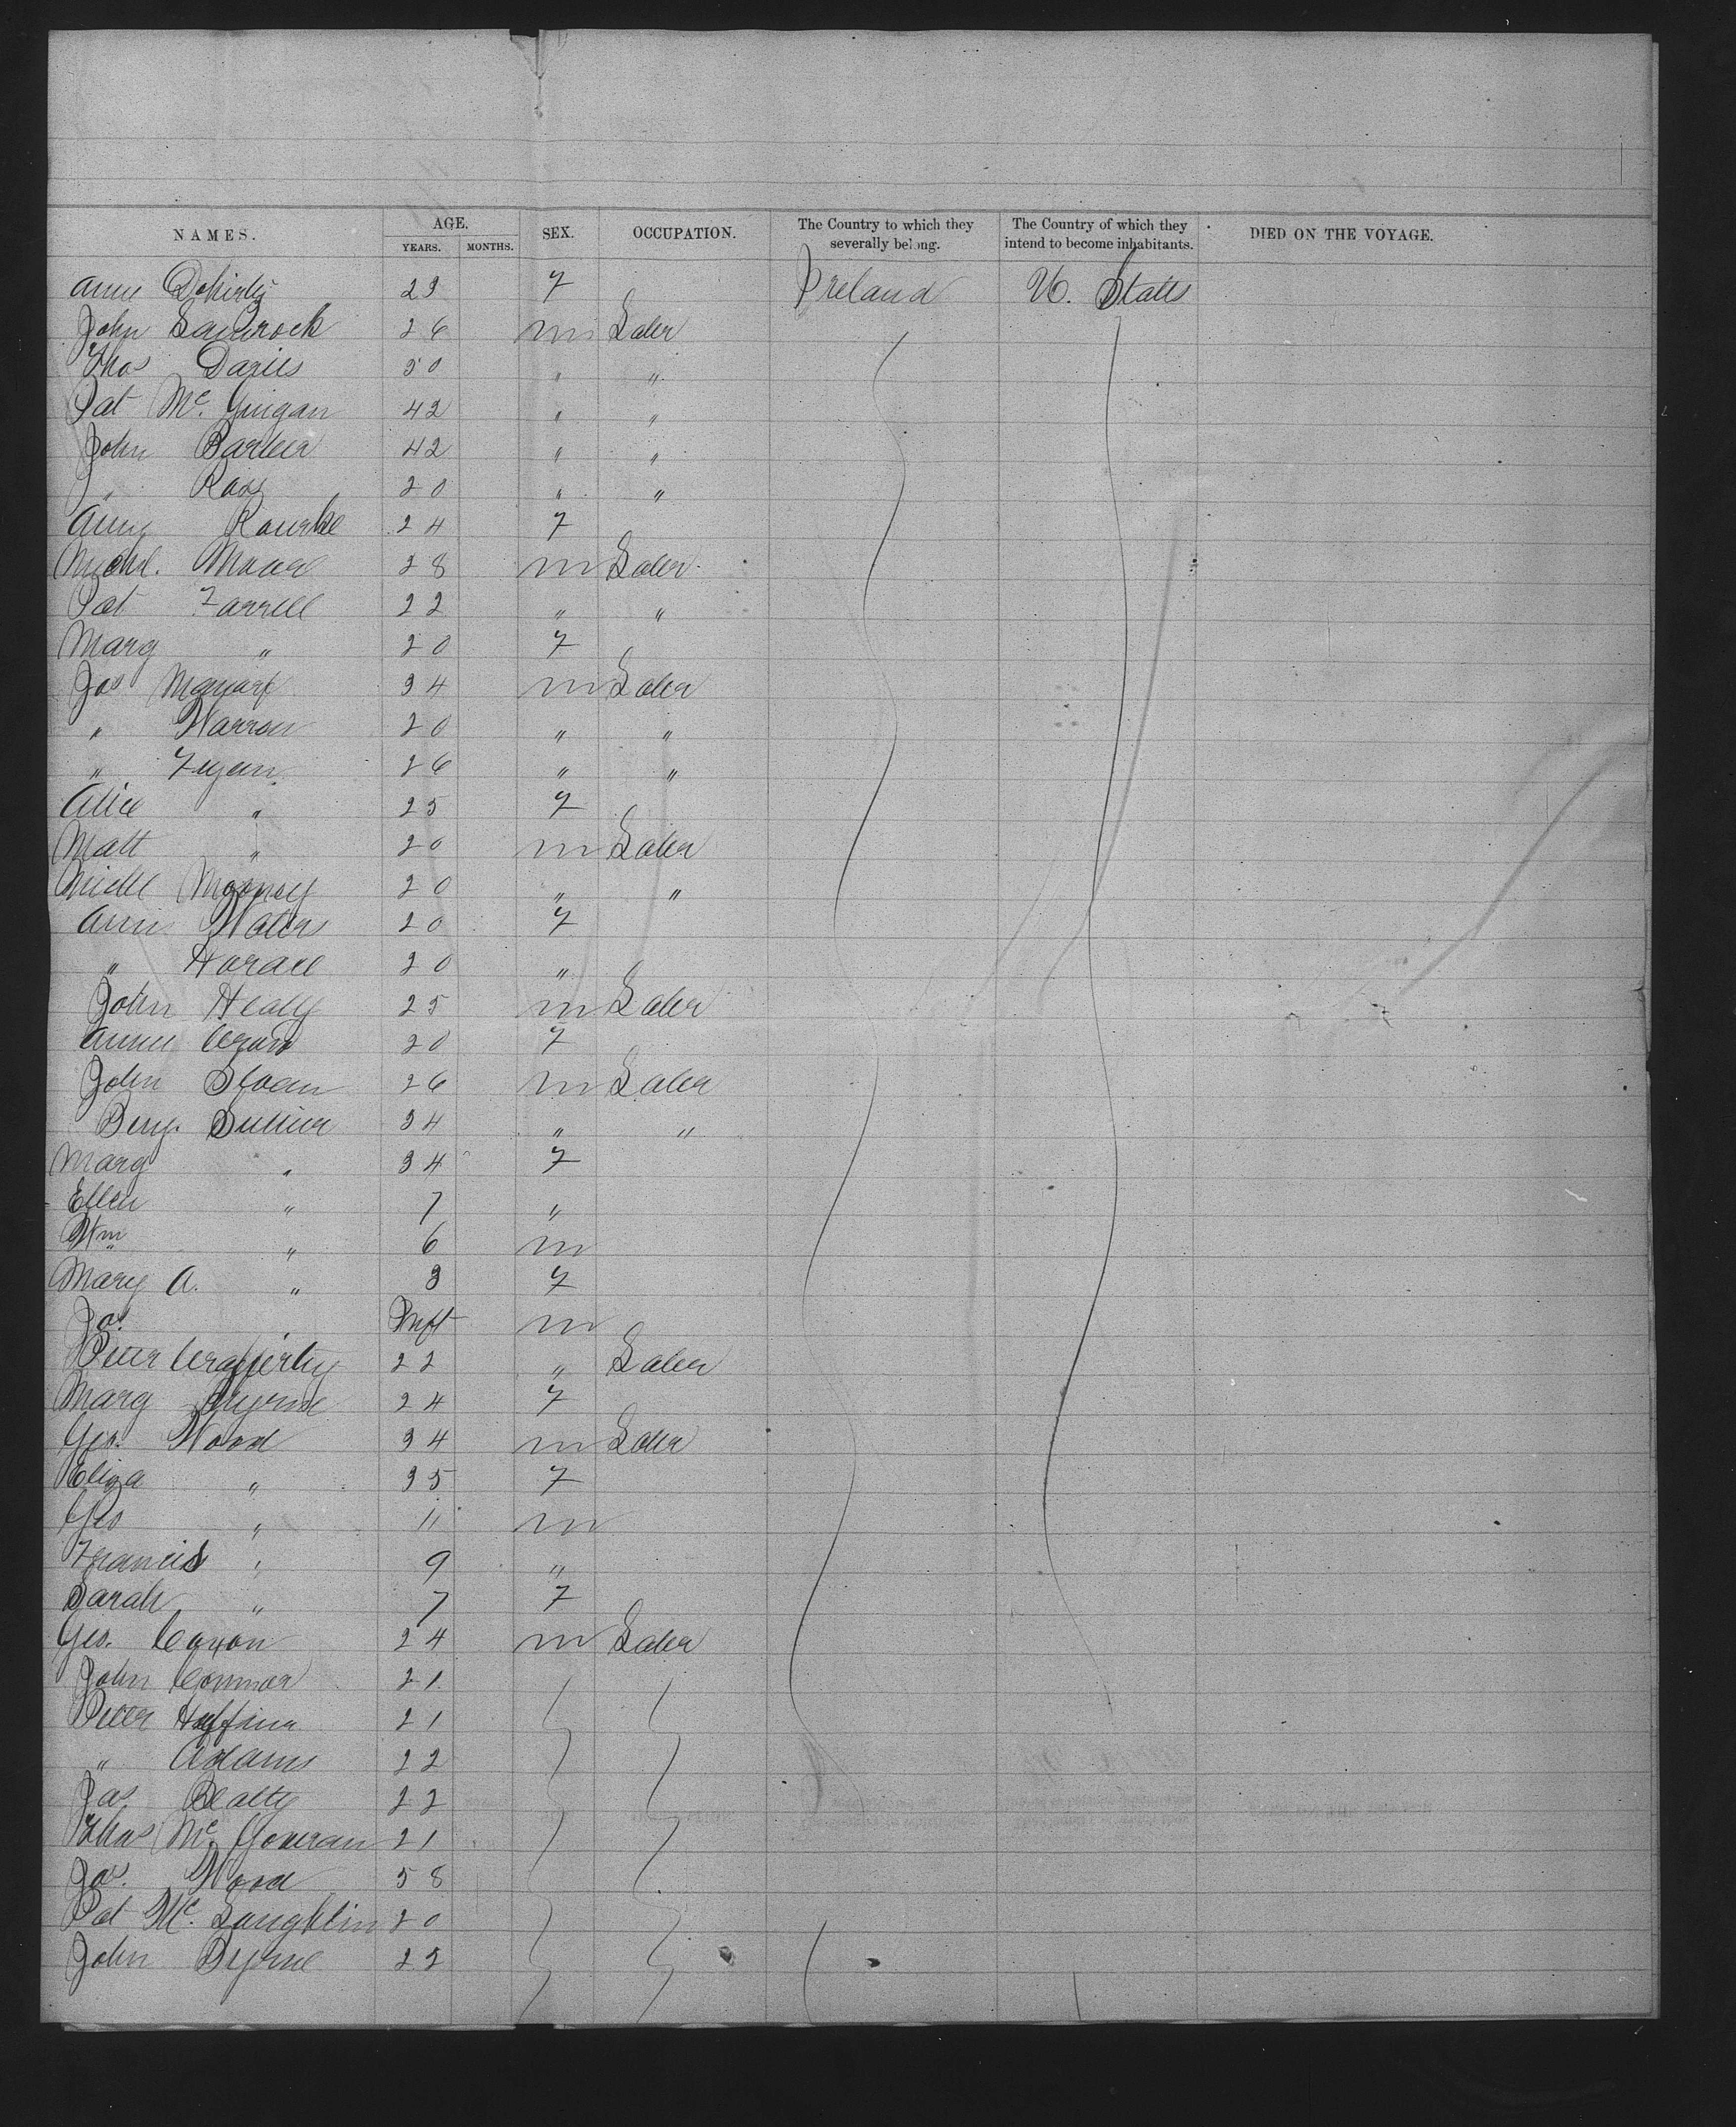 NAMES. AGE. SEX. OCCUPATION. The Country to which they severally belong. The Country of which they intend to become inhabitants. DIED ON THE VOYAGE.
YEARS. MONTHS.
Annie Doherty 23 F Ireland U. States
John 26 m Laber
Thos Davies 30 " "
Pat McGuigan 42 " "
John Barker 42 " "
" Ross 20 " "
Amy Rourke 24 F
Michl. Moore 28 m Laber
Pat Farrell 22 " "
Marg " 20 F
Jos 34 m Laber
" Warron 20 " "
" 26 " "
Alice " 25 F
Matt " 20 m Laber
Michl Mooney 20 " "
Ann Waters 20 F
" 20 "
John Healy 25 m Laber
Annie 20 F
John Sloan 26 m Laber
Benj. 34 " "
Marg " 34 F
Ellen " 7 "
Wm " 6 m
Mary A. " 3 F
Jos. Inft m
Peter 22 " Laber
Marg Byrne 24 F
Geo. Wood 34 m Laber
Eliza " 35 F
Geo " 11 m
Francis " 9 "
Sarah " 7 F
Geo. Coxon 24 m Laber
John Connor 21
Peter 21
" Adams 22
Jas. Beatty 22
Thos McGoveran 21
Jos. Wood 58
Pat McLaughlin 20
John Byrne 22